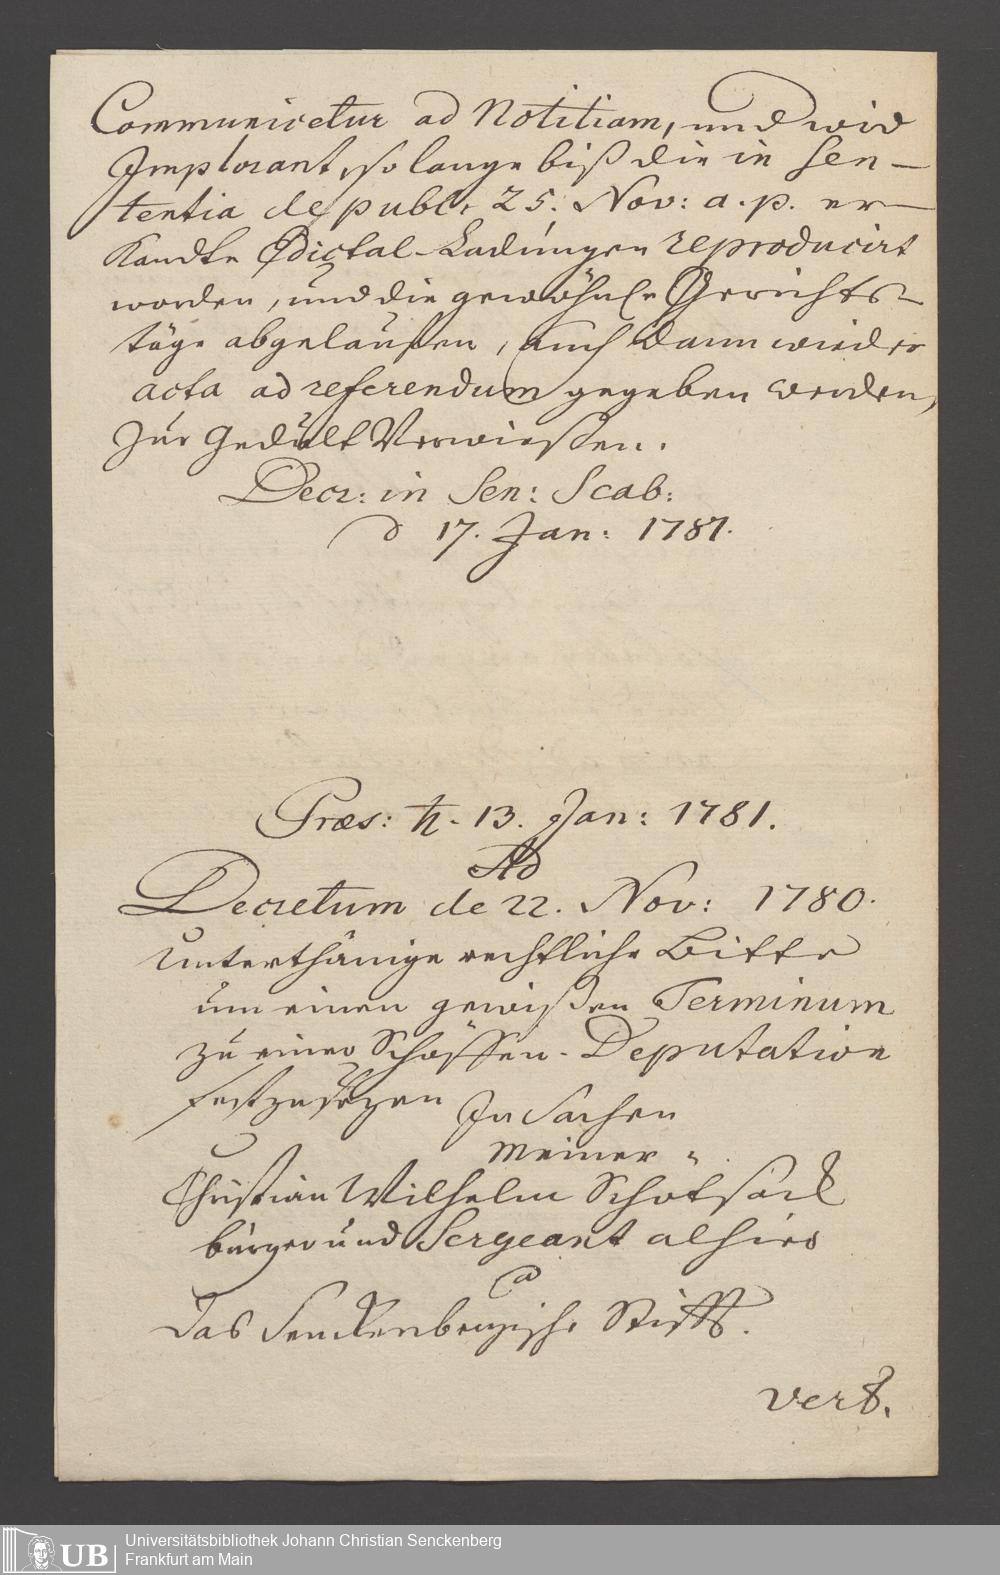 Communicetur ad Notitiam, und wird
Implorant, so lange biß die in Sen-
tentia de publ: 25. Nov: a. p. er-
kandte Edictal-Ladungen reproducirt
worden, und die gewöhnle Gerichts-
täge abgelaufen, auch dann wieder
acta ad referendum gegeben werden,
zur Gedult Verwiesen.
Decr: in Sen: Scab:
d 17. Jan: 1781.
Præs: ♄. 13. Jan: 1781.
Ad
Decretum de 22. Nov: 1780.
unterthänige rechtliche Bitte
um einen gewißen Terminum
zu einer Schöffen-Deputation
festzusezen In Sachen
Meiner
Christian Wilhelm Schotsack
bürger und Sergeant alhier
ca
das Senckenbergische Stifft.
vert.
UB
Universitätsbibliothek Johann Christian Senckenberg
Frankfurt am Main